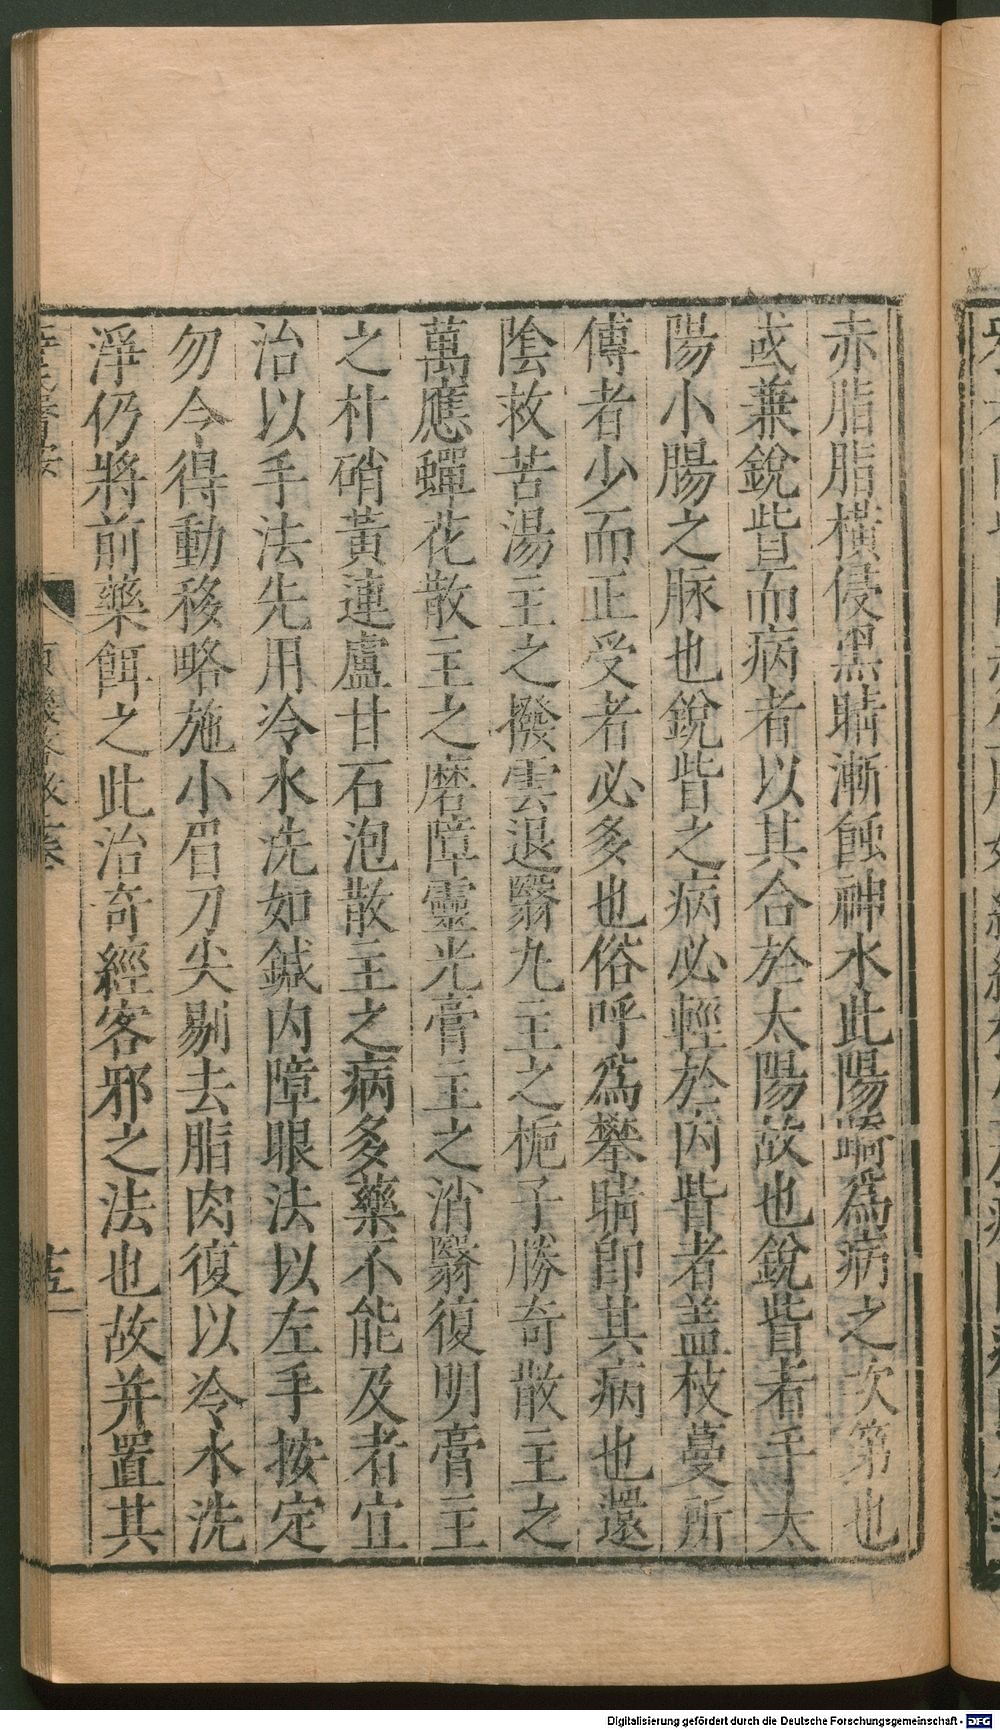 赤脂脂橫侵黑睛漸蝕神水此陽蹻爲病之次第也
或兼銳眥而病者以其合於太陽故也銳眥者手太
陽小腸之脈也銳眥之病必輕於內眥者蓋枝蔓所
傅者少而正受者必多也俗呼爲攀睛卽其病也還
陰救苦湯主之撥雲退翳丸主之梔子勝奇散主之
萬應蟬花散主之磨障靈光膏主之消翳復明膏主
之朴硝黃連盧甘石泡散主之病多藥不能及者宜
治以手法先用冷水洗如鍼內障眼法以左手按定
勿令得動移略施小眉刀尖剔去脂肉復以冷水洗
淨仍將前藥餌之此治奇經客邪之法也故幷置其
Digitalisierung gefördert durch die Deutsche Forschungsgemeinschaft - DFG